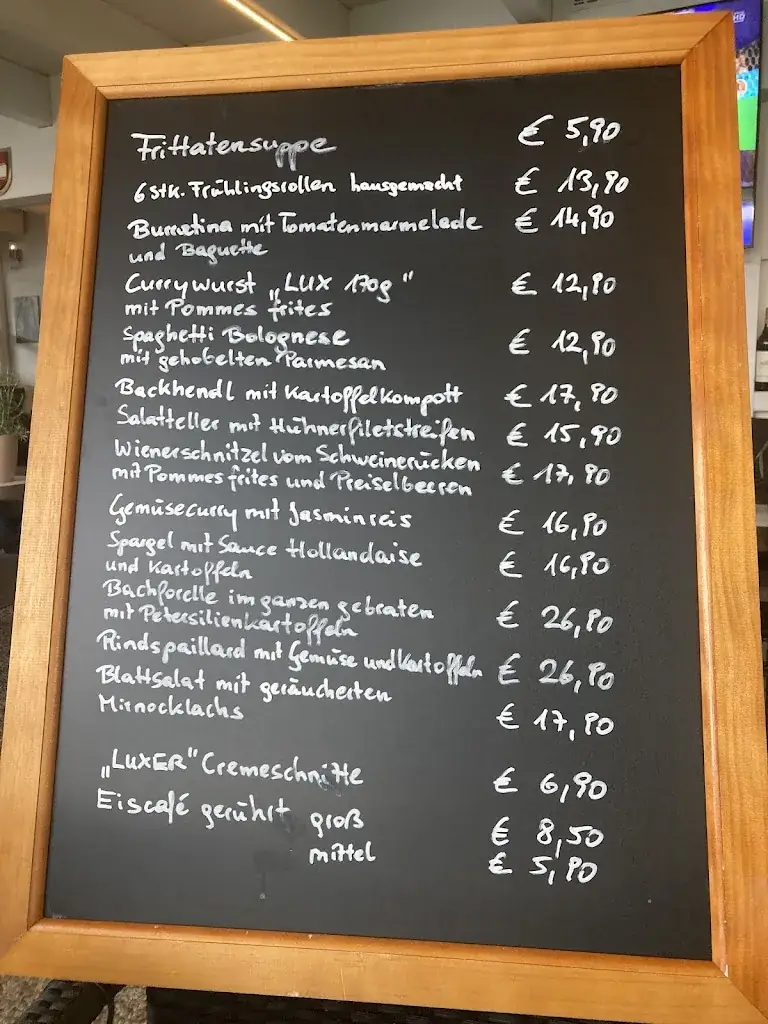 Frittatensuppe € 5,90
6 Stk. Frühlingsrollen hausgemacht € 13,90
Burratina mit Tomatenmarmelade € 14,90
und Baguette
Currywurst „LUX 170g" € 12,90
mit Pommes frites
Spaghetti Bolognese € 12,90
mit gehobelten Parmesan
Backhendl mit Kartoffelkompott € 17,90
Salatteller mit Hühnerfiletstreifen € 15,90
Wienerschnitzel vom Schweinerücken € 17,90
mit Pommes frites und Preiselbeeren
Gemüsecurry mit Jasminreis € 16,90
Spargel mit Sauce Hollandaise € 16,90
und Kartoffeln
Bachforelle im ganzen gebraten € 26,90
mit Petersilienkartoffeln
Rindspaillard mit Gemüse und Kartoffeln € 26,90
Blattsalat mit geräucherten
Mirnocklachs € 17,90
„LUXER" Cremeschnitte € 6,90
Eiscafé gerührt groß € 8,50
mittel € 5,90